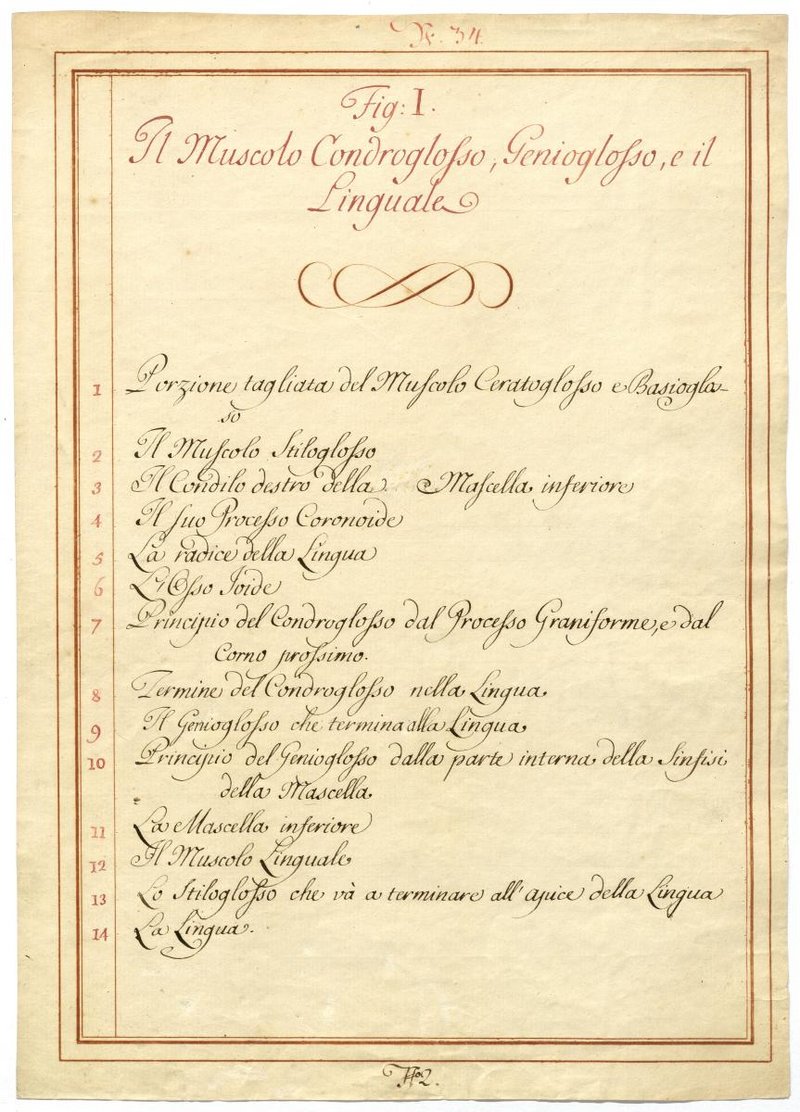 N. 34.
Fig: I.
Il Muscolo Condroglosso, Genioglosso, e il
Linguale
1 Porzione tagliata del Muscolo Ceratoglosso e Basioglo-
so
2 Il Muscolo Stiloglosso
3 Il Condilo destro della Mascella inferiore
4 Il suo Processo Coronoide
5 La radice della Lingua
6 L'Osso Joide
7 Principio del Condroglosso dal Processo Graniforme, e dal
Corno prossimo.
8 Termine del Condroglosso nella Lingua
9 Il Genioglosso che termina alla Lingua
10 Principio del Genioglosso dalla parte interna della Sinfisi
della Mascella
11 La Mascella inferiore
12 Il Muscolo Linguale
13 Lo Stiloglosso che và a terminare all'apice della Lingua
14 La Lingua.
No 2.